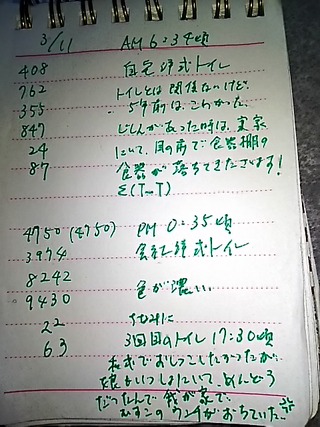 3/11 AM 6:34頃
408 自宅洋式トイレ
762 トイレとは関係ないけど、
355 5年前は、こわかった。
847 じしんがあった時は、実家
24 にいて、目の前で食器棚の
87 食器が落ちてきたざます!
Σ(T_T)
4750 (4750) PM 0:35頃
3974 会社洋式トイレ
8242 色が濃い。
9430
22 ちなみに
63 3回目のトイレ 17:30頃
和式でおしっこしたかったが、
娘がいっしょにいて、めんどう
だったんで我が家で。
むすこのウンチがおちていた。